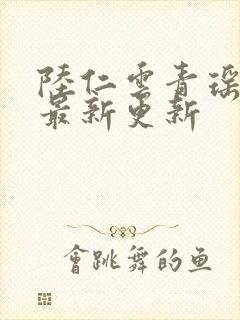 陸仁雲青瑶
最新更新
會跳舞的鱼